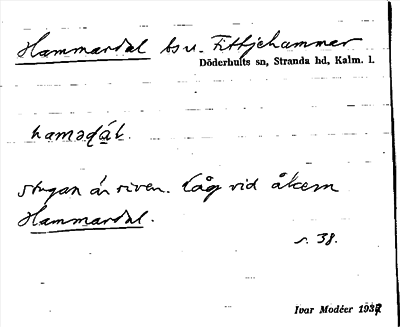 Hammardal bs u. Fittjehammar
Döderhults sn, Stranda hd, Kalm. l.
hamədál.
stugan är riven. Låg vid åkern
Hammardal.
s. 38.
Ivar Modéer 1937